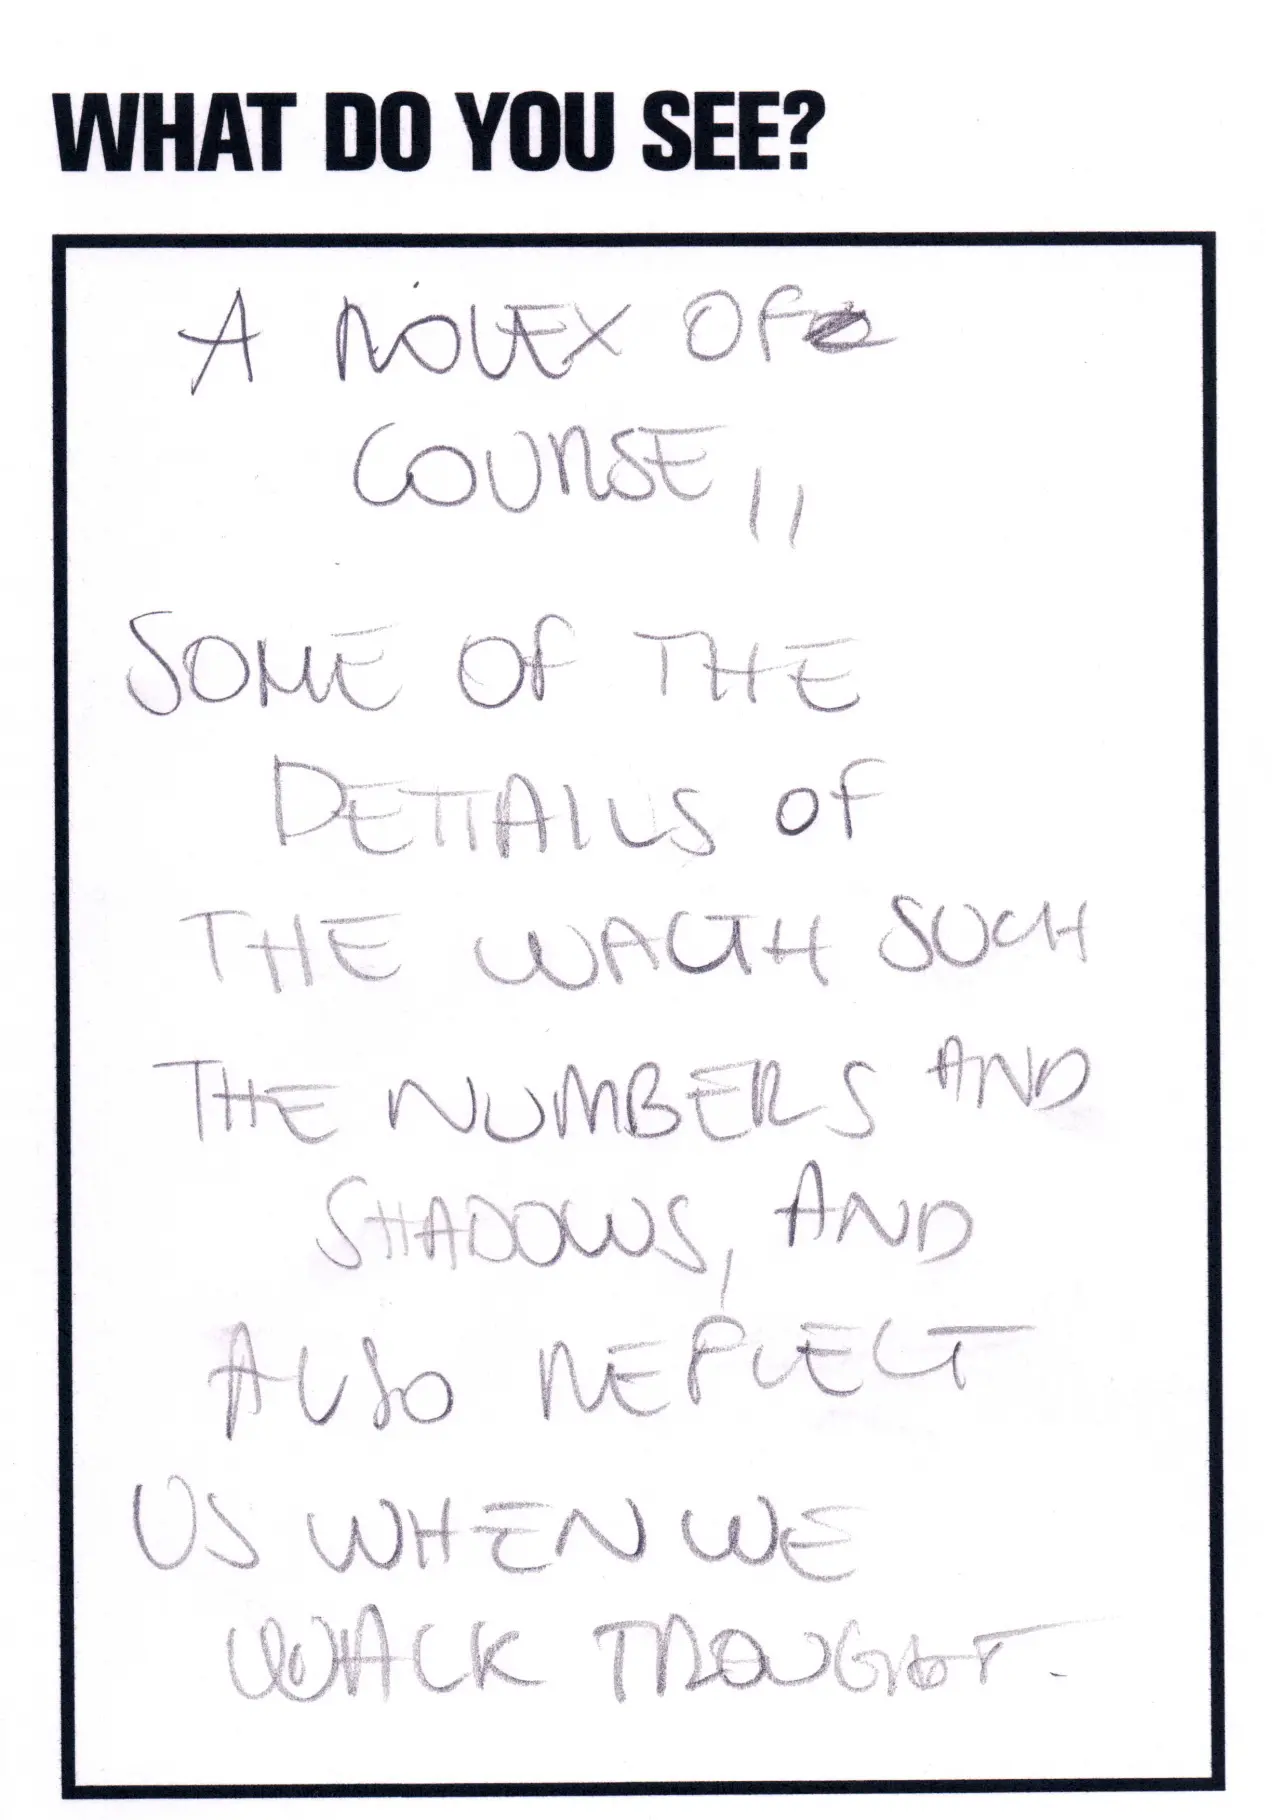 WHAT DO YOU SEE?
A ROLEX OF
COURSE,,
SOME OF THE
DETTAILS OF
THE WACTH SUCH
THE NUMBERS AND
SHADOWS, AND
ALSO REFLECT
US WHEN WE
WALK TROUGHT.